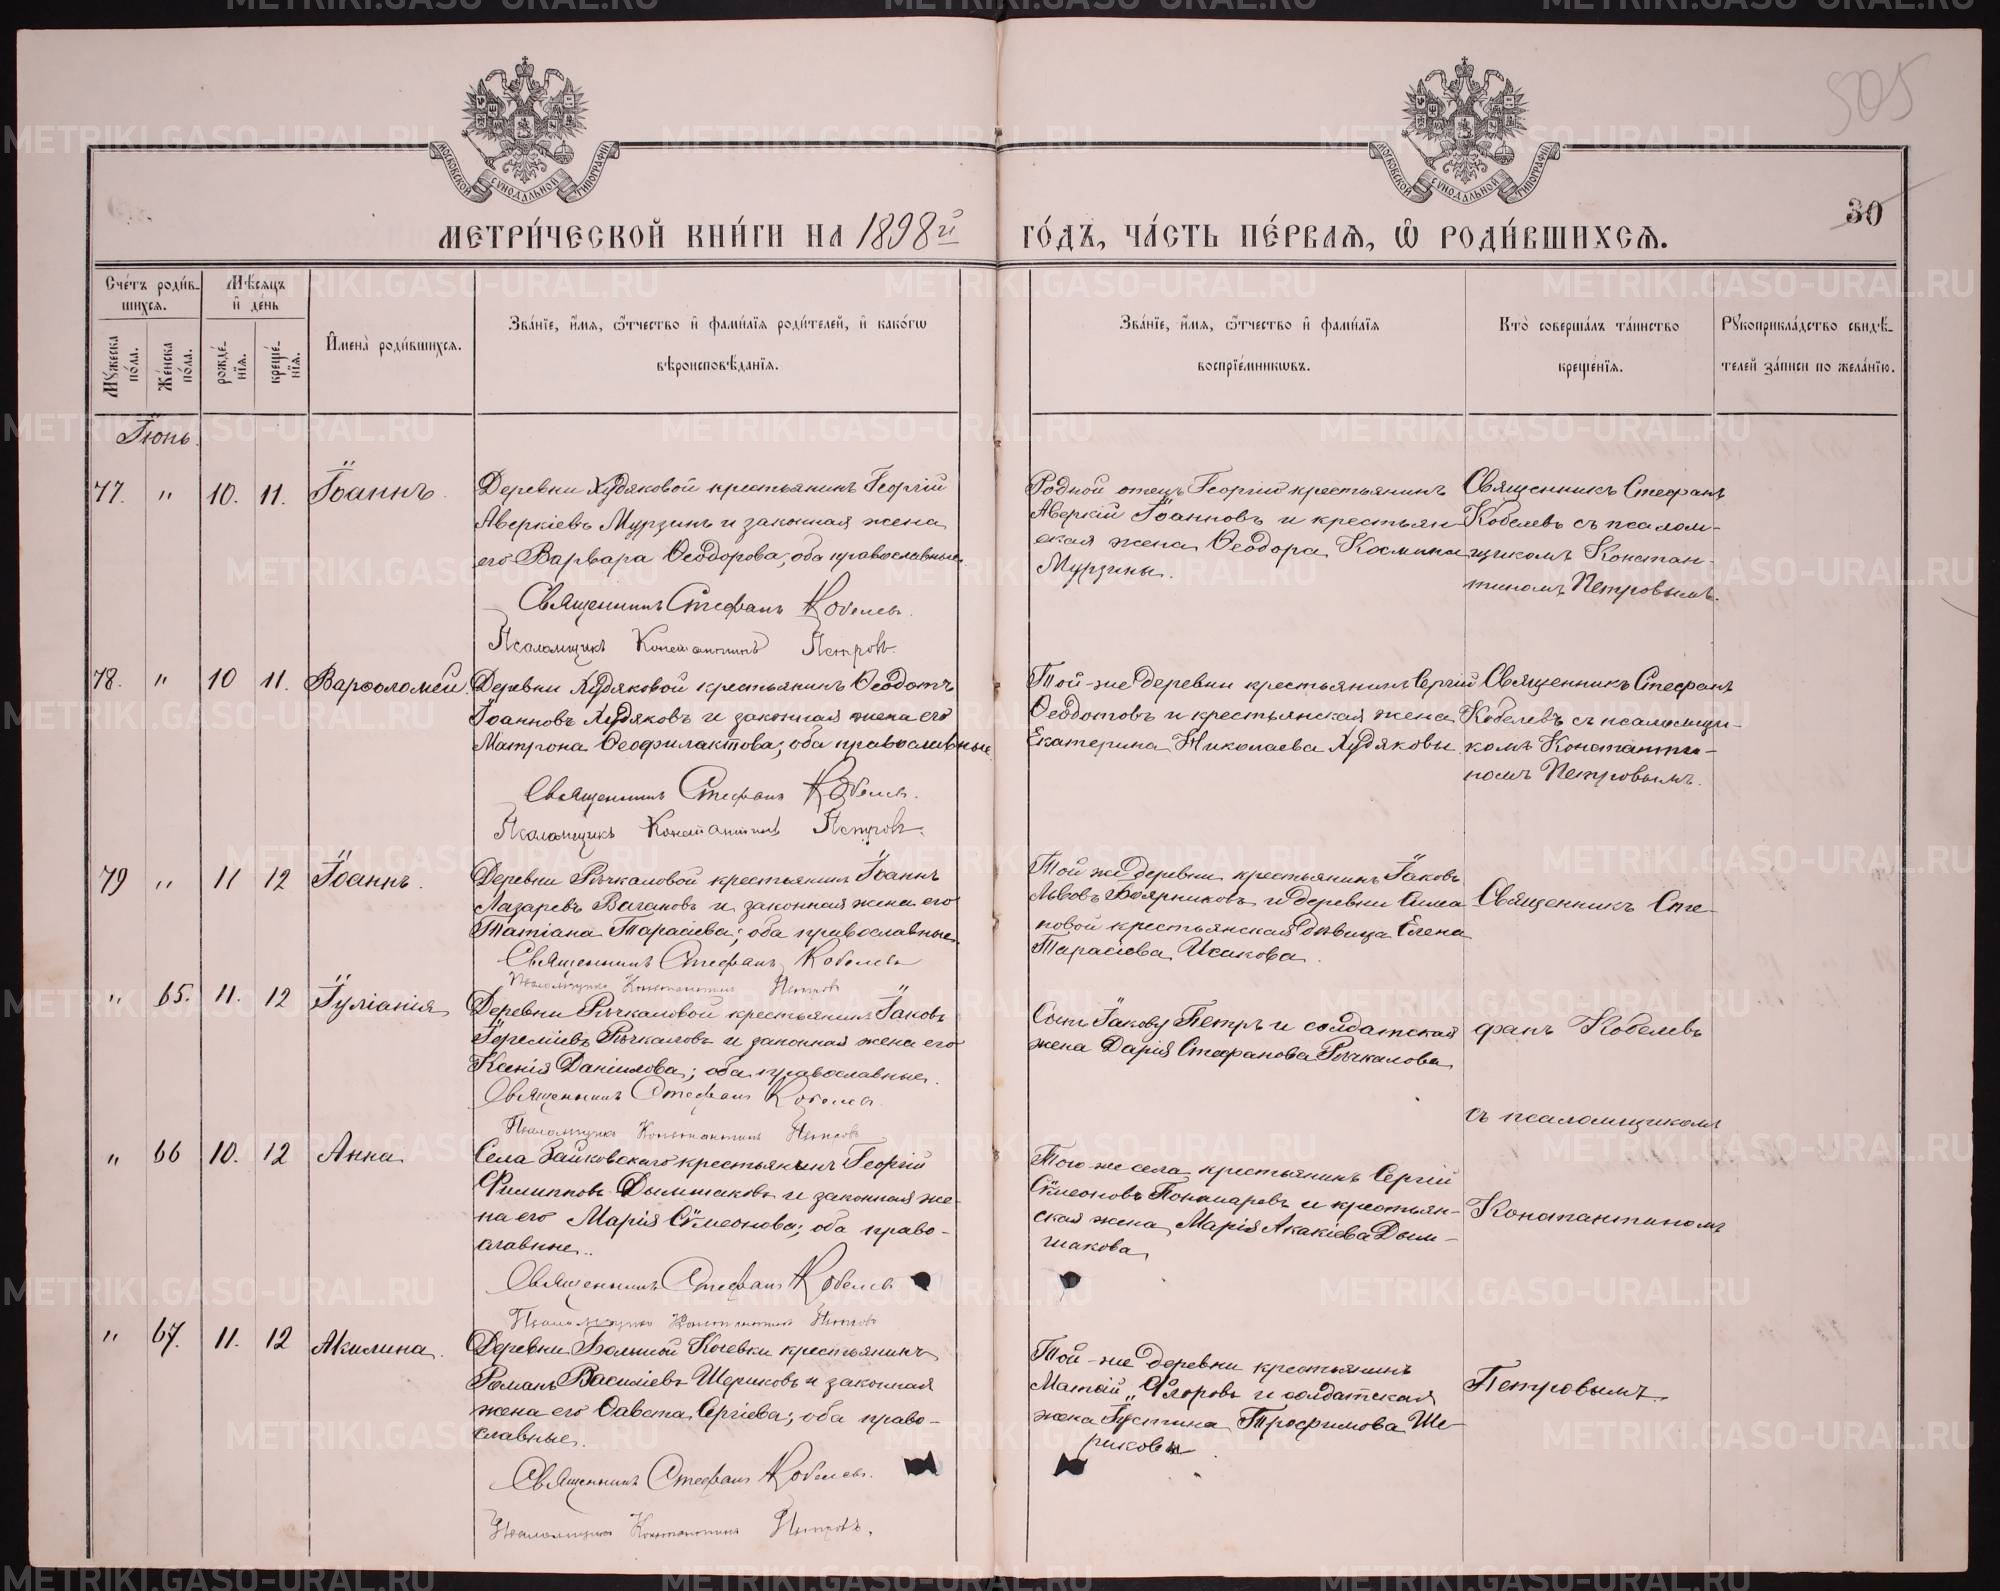 505
30
МОСКОВСКОЙ СѴНОДАЛЬНОЙ ТИПОГРАФІИ
МОСКОВСКОЙ СѴНОДАЛЬНОЙ ТИПОГРАФІИ
МЕТРИ́ЧЕСКОЙ КНИ́ГИ НА 1898й ГО́ДЪ, ЧА́СТЬ ПЕ́РВАЯ, Ѡ РОДИ́ВШИХСЯ.
Сче́тъ роди́в-
шихся.
Мꙋжеска по́ла.
Же́нска по́ла.
Мѣ́сяцъ
и҆ де́нь
рожде́-
нїя.
креще́-
нїя.
И҆мена̀ роди́вшихся.
Зва́нїе, и҆́мя, ѻ҆́тчество и҆ фами́лїя роди́телей, и҆ како́гѡ
вѣроисповѣ́данїя.
Зва́нїе, и҆́мя, ѻ҆́тчество и҆ фами́лїя
воспрїе́мникѡвъ.
Кто̀ соверша́лъ та́инство
креще́нїя.
Рꙋкоприкла́дство свидѣ́-
телей за́писи по жела́нїю.
Іюнь.
77. " 10. 11. Іоаннъ.
Деревни Худяковой крестьянинъ Георгій
Аверкіевъ Мурзинъ и законная жена
его Варвара Ѳеодорова, оба православные.
Священникъ Стефанъ Кобелевъ.
Псаломщикъ Константинъ Петровъ.
Родной отецъ Георгію крестьянинъ
Аверкій Іоанновъ и крестьян-
ская жена Ѳеодора Космина
Мурзины.
Священникъ Стефанъ
Кобелевъ съ псалом-
щикомъ Констан-
тиномъ Петровымъ.
78. " 10 11. Варѳоломей.
Деревни Худяковой крестьянинъ Ѳеодотъ
Іоанновъ Худяковъ и законная жена его
Матрона Ѳеофилактова; оба православные
Священникъ Стефанъ Кобелевъ.
Псаломщикъ Константинъ Петровъ.
Той-же деревни крестьянинъ Сергій
Ѳеодотовъ и крестьянская жена
Екатерина Николаева Худяковы.
Священникъ Стефанъ
Кобелевъ съ псаломщи-
комъ Константи-
номъ Петровымъ.
79 " 11 12 Іоаннъ.
Деревни Рычкаловой крестьянинъ Іоаннъ
Лазаревъ Вагановъ и законная жена его
Татіана Тарасіева; оба православные.
Священникъ Стефанъ Кобелевъ
Псаломщикъ Константинъ Петровъ
Той же деревни крестьянинъ Іаковъ
Львовъ Боярниковъ и деревни Сима-
новой крестьянская дѣвица Елена
Тарасіева Исакова.
Священникъ Сте-
" 65. 11. 12 Іуліанія
Деревни Рычкаловой крестьянинъ Іаковъ
Іереміевъ Рычкаловъ и законная жена его
Ксенія Даніилова; оба православные.
Священникъ Стефанъ Кобелевъ.
Псаломщикъ Константинъ Петровъ
Сынъ Іакову Петръ и солдатская
жена Дарія Стефанова Рычкалова
фанъ Кобелевъ
съ псаломщикомъ
" 66 10. 12 Анна
Села Зайковскаго крестьянинъ Георгій
Филипповъ Дымшаковъ и законная же-
на его Марія Сѵмеонова; оба право-
славные.
Священникъ Стефанъ Кобелевъ
Псаломщикъ Константинъ Петровъ
Того-же села крестьянинъ Сергій
Сѵмеоновъ Пономаревъ и крестьян-
ская жена Марія Акакіева Дым-
шакова
Константиномъ
" 67. 11. 12 Акилина.
Деревни Большой Кочевки крестьянинъ
Романъ Василіевъ Шориковъ и законная
жена его Савста Сергіева; оба право-
славные.
Священникъ Стефанъ Кобелевъ.
Псаломщикъ Константинъ Петровъ.
Той-же деревни крестьянинъ
Матѳій Флоровъ и солдатская
жена Іустина Трофимова Ше-
риковы
Петровымъ.
METRIKI.GASO-URAL.RU